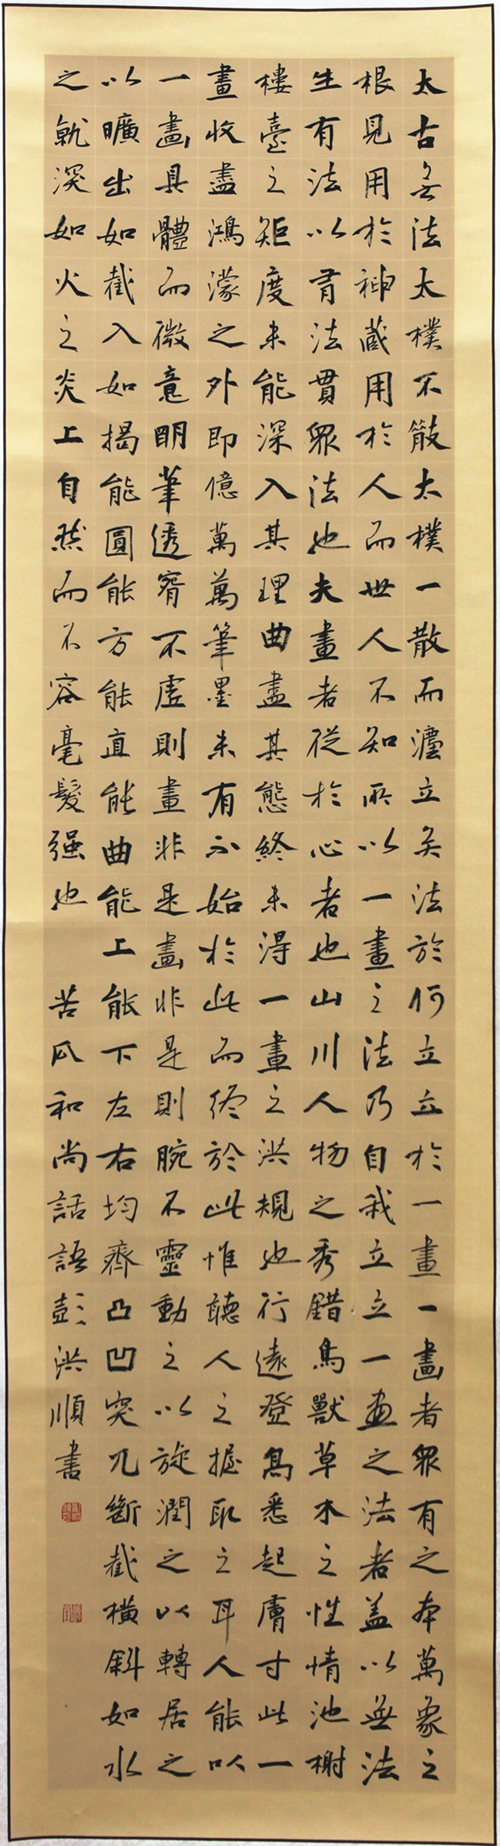 太古無法太樸不散太樸一散而灋立矣法於何立立於一畫一畫者眾有之本萬象之
根見用於神藏用於人而世人不知所以一畫之法乃自我立立一畫之法者蓋以無法
生有法以有法貫眾法也夫畫者從於心者也山川人物之秀錯鳥獸草木之性情池榭
樓臺之矩度未能深入其理曲盡其態終未得一畫之洪規也行遠登高悉起膚寸此一
畫收盡鴻濛之外即億萬萬筆墨未有不始於此而終於此惟聽人之握取之耳人能以
一畫具體而微意明筆透窅不虛則畫非是畫非是則腕不靈動之以旋潤之以轉居之
以曠出如截入如揭能圓能方能直能曲能上能下左右均齊凸凹突兀斷截橫斜如水
之就深如火之炎上自然而不容毫髮强也 苦瓜和尚話語彭洪順書